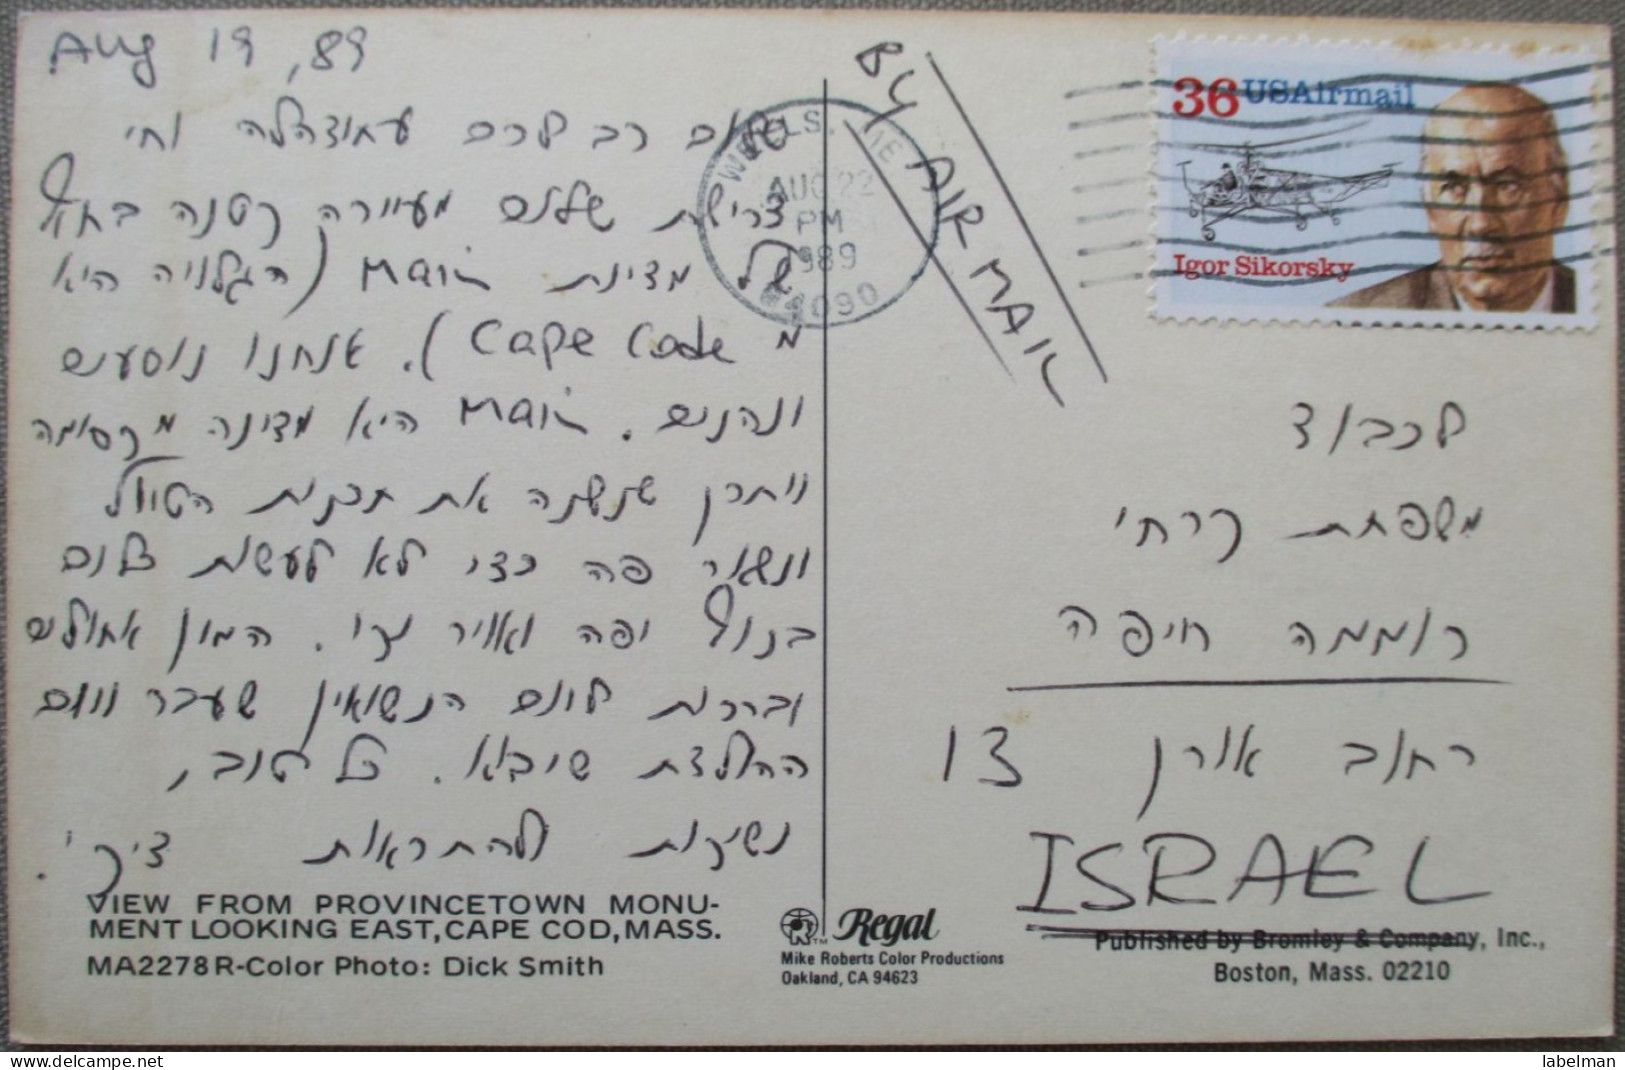 Aug 19, 89
שלום רב לכם וחי
דרישת שלום מעיירה קטנה בחוף
של מדינת Main (הגלויה היא
מ Cape Code). אנחנו נוסעים
ונהנים. Main היא מדינה מקסימה
ויתכן שנשנה את תכנית הטיול
ונשאר פה כדי לא לעשות כלום
בנוף יפה ואויר נקי. המון איחולים
וברכות ליום הנשואין שעבר ויום
ההולדת שיבוא. כל טוב,
נשיקות ולהתראות ציקי.
VIEW FROM PROVINCETOWN MONU-
MENT LOOKING EAST, CAPE COD, MASS.
MA2278R-Color Photo: Dick Smith
WELLS, ME
AUG 22
PM
1989
04090
BY AIR MAIL
36 USAirmail
Igor Sikorsky
לכבוד
משפחת קרחי
רוממה חיפה
רחוב אורן 13
ISRAEL
Regal
Mike Roberts Color Productions
Oakland, CA 94623
Published by Bromley & Company, Inc.,
Boston, Mass. 02210
labelman